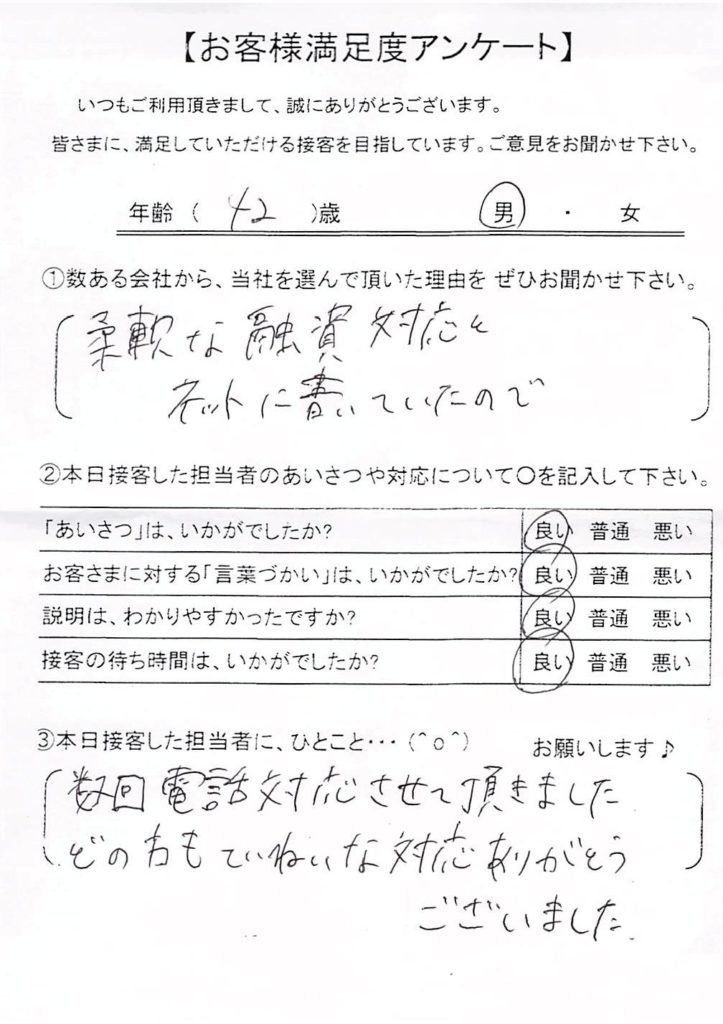 【お客様満足度アンケート】
いつもご利用頂きまして、誠にありがとうございます。
皆さまに、満足していただける接客を目指しています。ご意見をお聞かせ下さい。
年齢（ 42 ）歳 男 ・ 女
①数ある会社から、当社を選んで頂いた理由を ぜひお聞かせ下さい。
柔軟な融資対応と
ネットに書いていたので
②本日接客した担当者のあいさつや対応について〇を記入して下さい。
「あいさつ」は、いかがでしたか? 良い 普通 悪い
お客さまに対する「言葉づかい」は、いかがでしたか? 良い 普通 悪い
説明は、わかりやすかったですか? 良い 普通 悪い
接客の待ち時間は、いかがでしたか? 良い 普通 悪い
③本日接客した担当者に、ひとこと･･･（＾ｏ＾） お願いします♪
数回電話対応させて頂きました
どの方もていねいな対応ありがとう
ございました